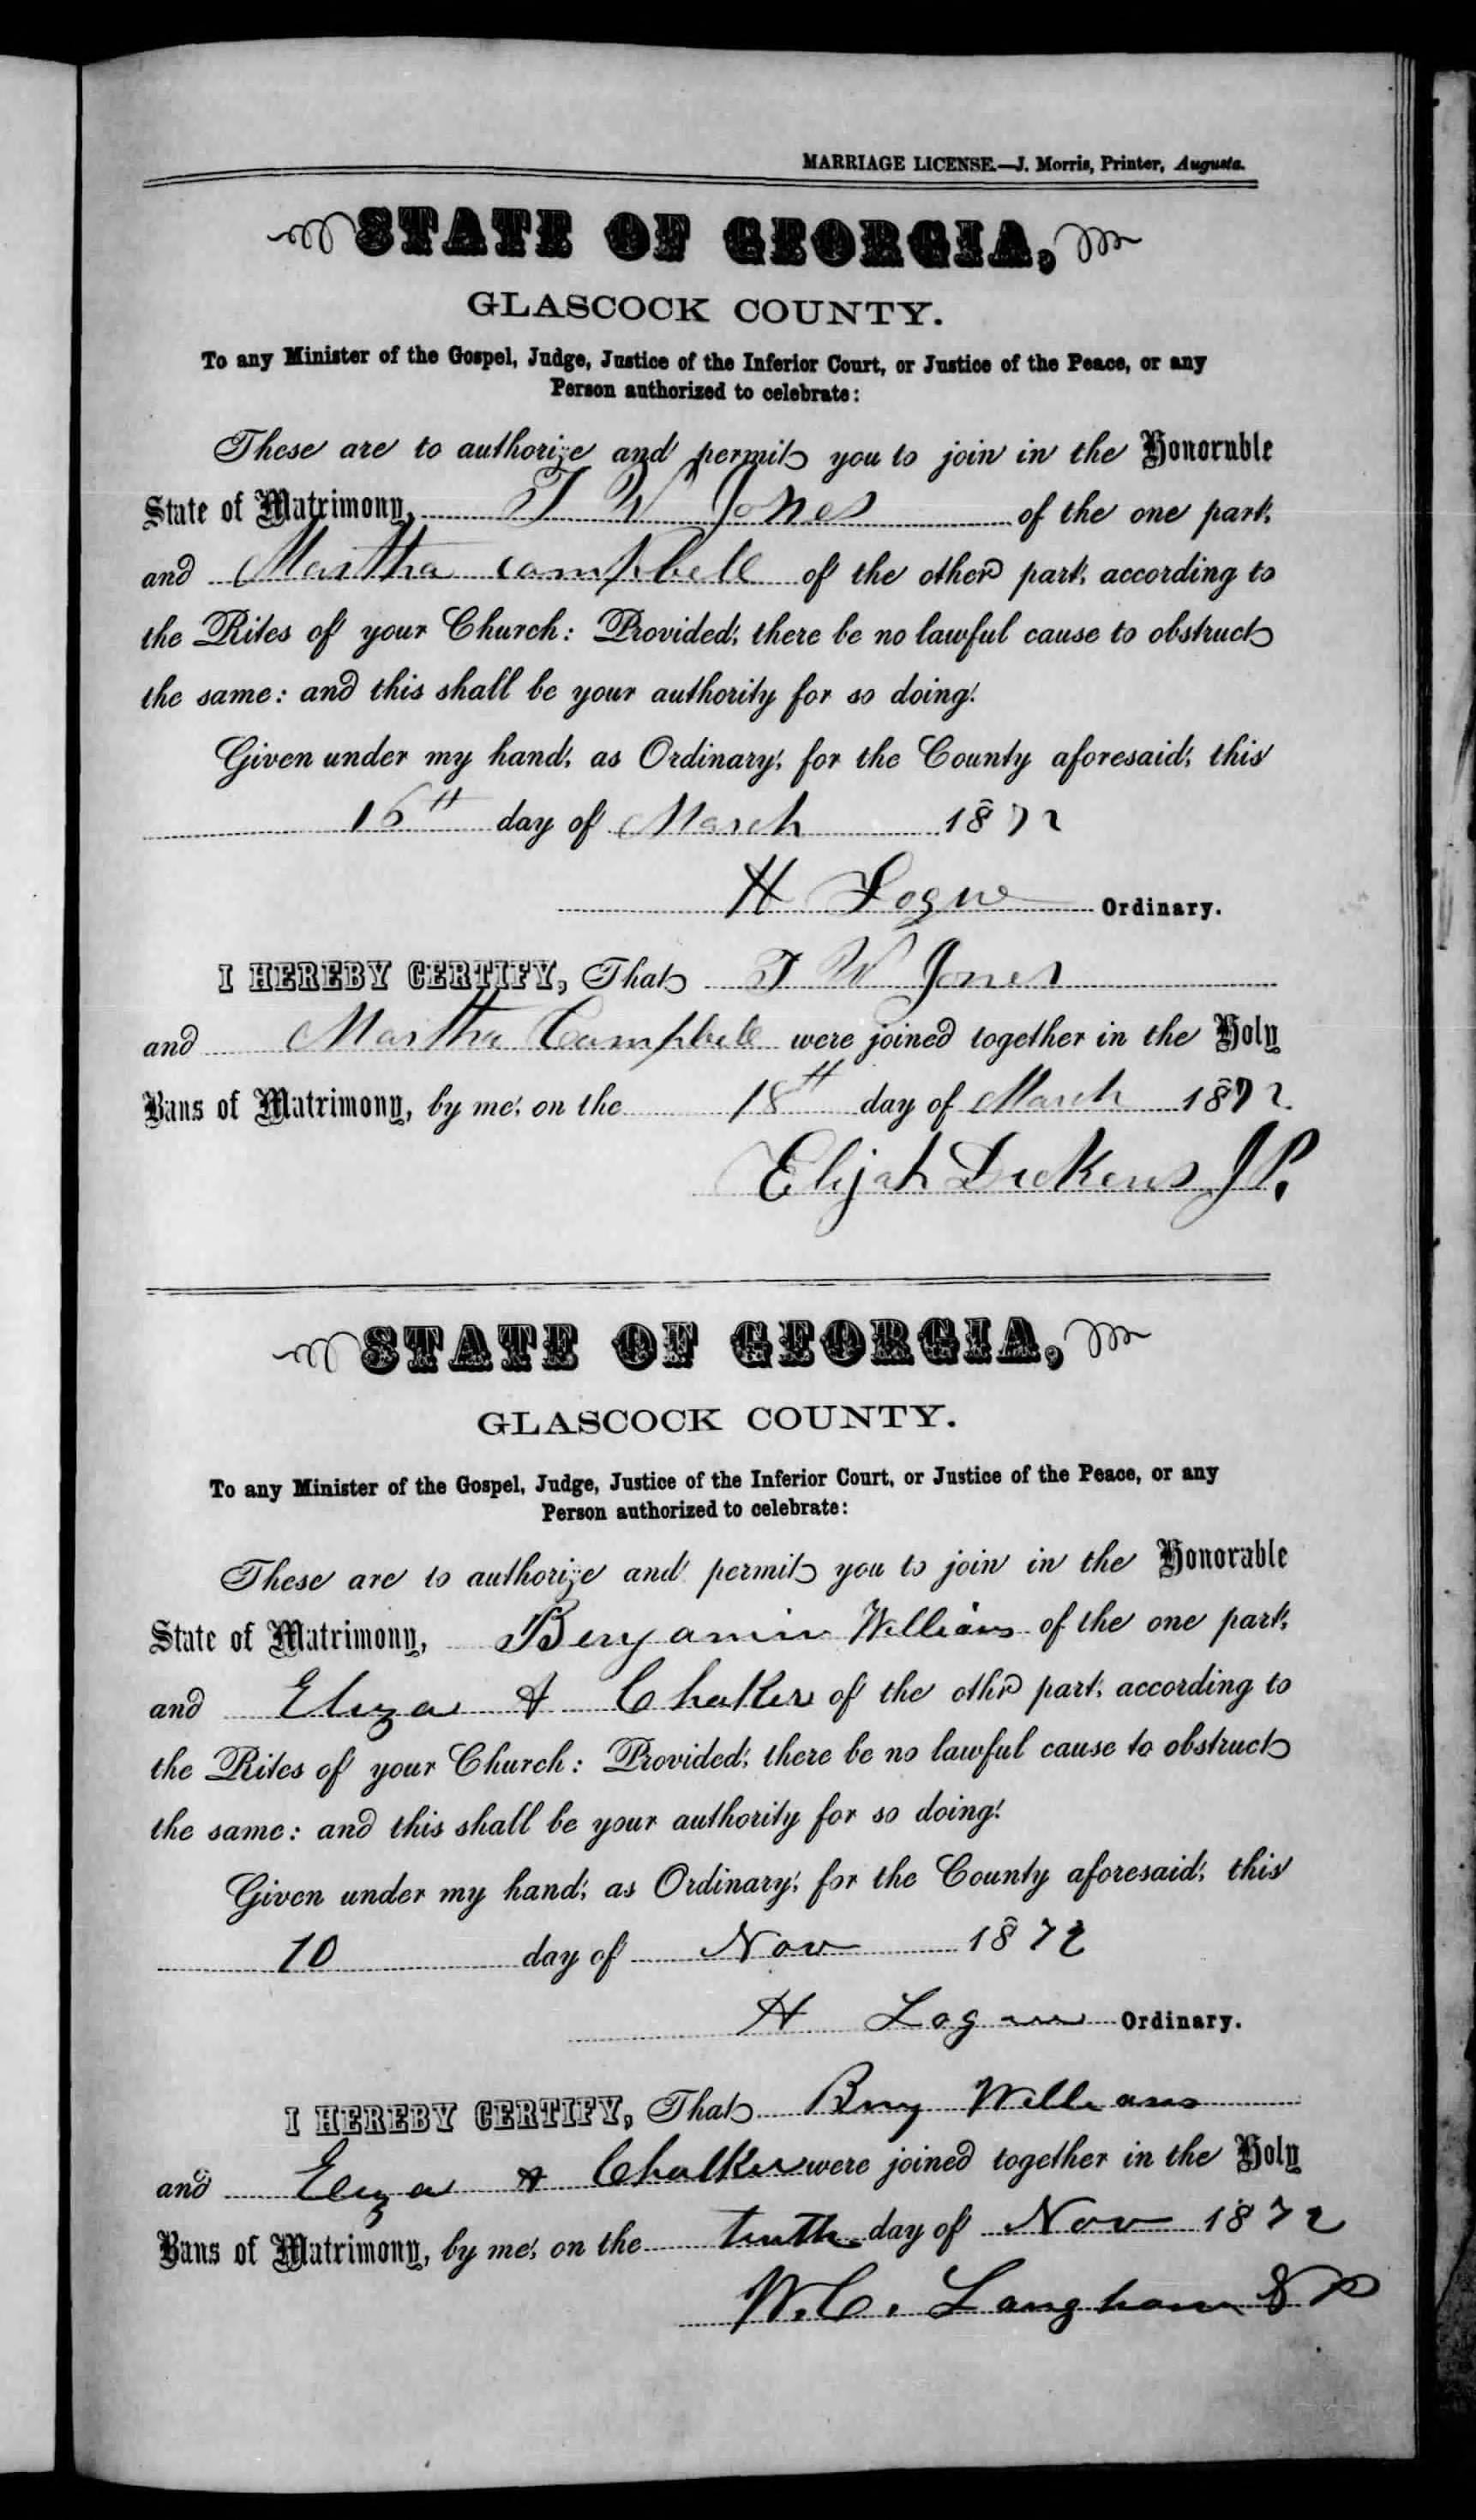 MARRIAGE LICENSE.—J. Morris, Printer, Augusta.
STATE OF GEORGIA,
GLASCOCK COUNTY.
To any Minister of the Gospel, Judge, Justice of the Inferior Court, or Justice of the Peace, or any
Person authorized to celebrate:
These are to authorize and permit you to join in the Honornble
State of Matrimony, T W Jones of the one part,
and Martha Campbell of the other part, according to
the Rites of your Church: Provided, there be no lawful cause to obstruct
the same: and this shall be your authority for so doing.
Given under my hand, as Ordinary, for the County aforesaid, this
16th day of March 1872
H Logue Ordinary.
I HEREBY CERTIFY, That T W Jones
and Martha Campbell were joined together in the Holy
Bans of Matrimony, by me, on the 18th day of March 1872.
Elijah Dickens J P.
STATE OF GEORGIA,
GLASCOCK COUNTY.
To any Minister of the Gospel, Judge, Justice of the Inferior Court, or Justice of the Peace, or any
Person authorized to celebrate:
These are to authorize and permit you to join in the Honorable
State of Matrimony, Benjamin Williams of the one part,
and Eliza A Chalker of the othr part, according to
the Rites of your Church: Provided, there be no lawful cause to obstruct
the same: and this shall be your authority for so doing.
Given under my hand, as Ordinary, for the County aforesaid, this
10 day of Nov 1872
H Logue Ordinary.
I HEREBY CERTIFY, That Benj Williams
and Eliza A Chalker were joined together in the Holy
Bans of Matrimony, by me, on the tenth day of Nov 1872
W. C. Langham N P